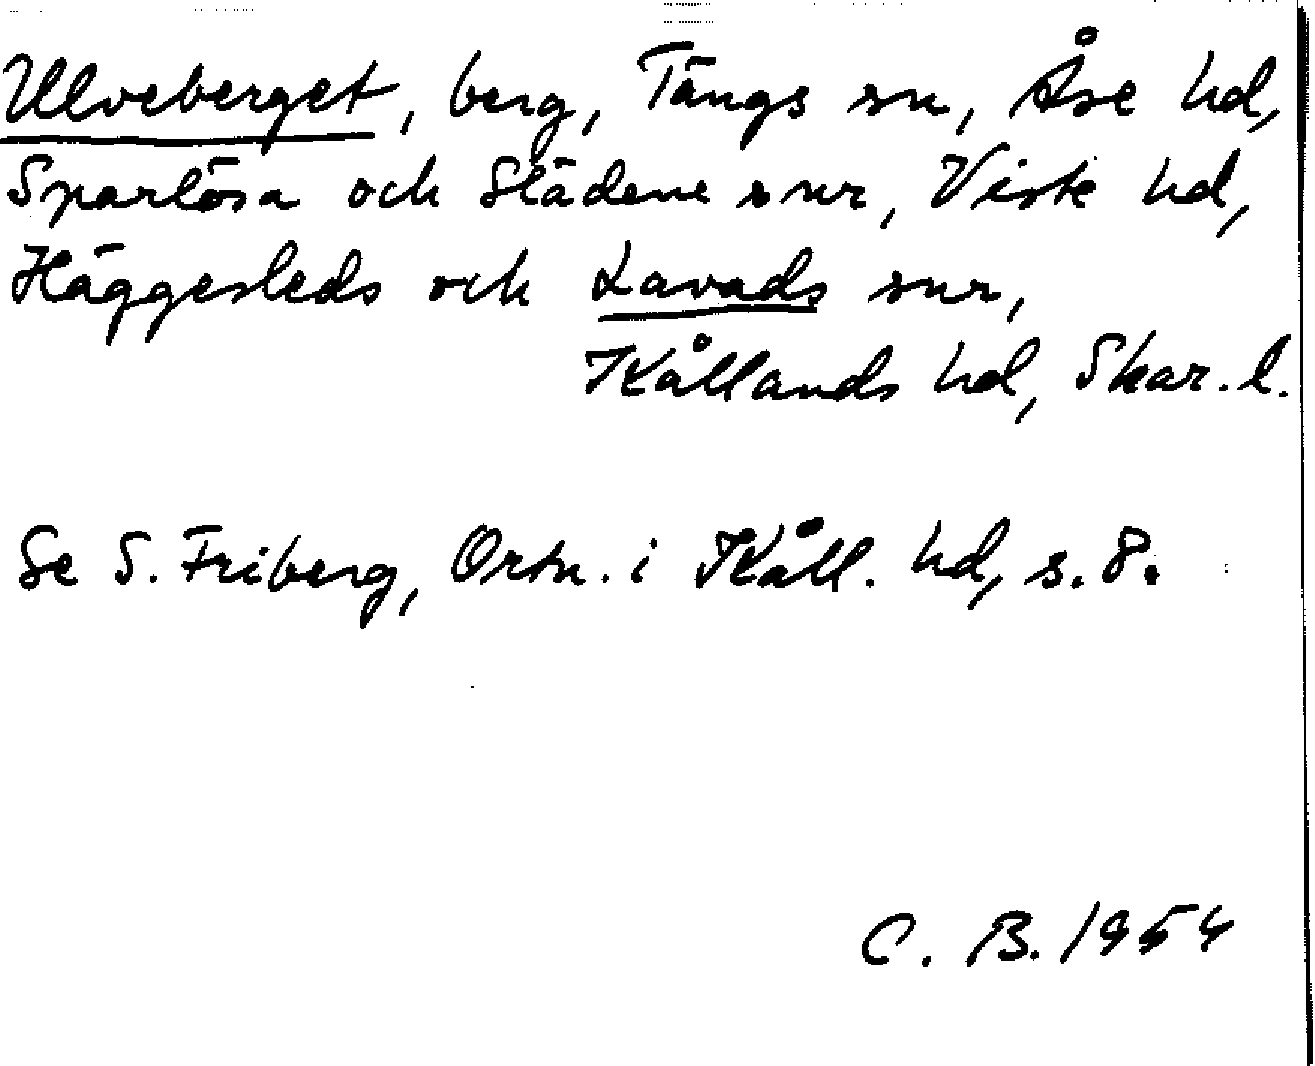 Ulveberget, berg, Tängs sn, Åse hd,
Sparlösa och Slädene snr, Viste hd,
Häggesleds och Lavads snr,
Kållands hd, Skar. l.
Se S. Friberg, Ortn. i Kåll. hd, s. 8.
C. B. 1954